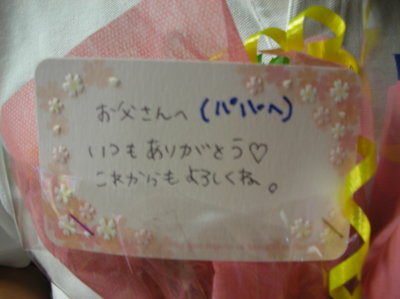 お父さんへ (パパへ)
いつもありがとう♡
これからもよろしくね。